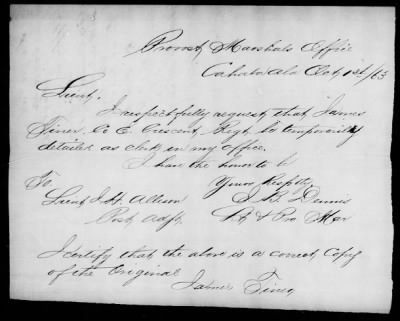 Provost Marshals Office
Cahaba Ala Oct 1st /63
Lieut.
I respectfully request that James
Finer Co E Crescent Regt be temporarily
detailed as clerk in my office.
I have the honor to b
To Yours Respftly
Lieut J. H. Allison S. B. Dennis
Post Adjt. Lt & Pro Mar
I certify that the above is a correct Copy
of the Original
James Finer